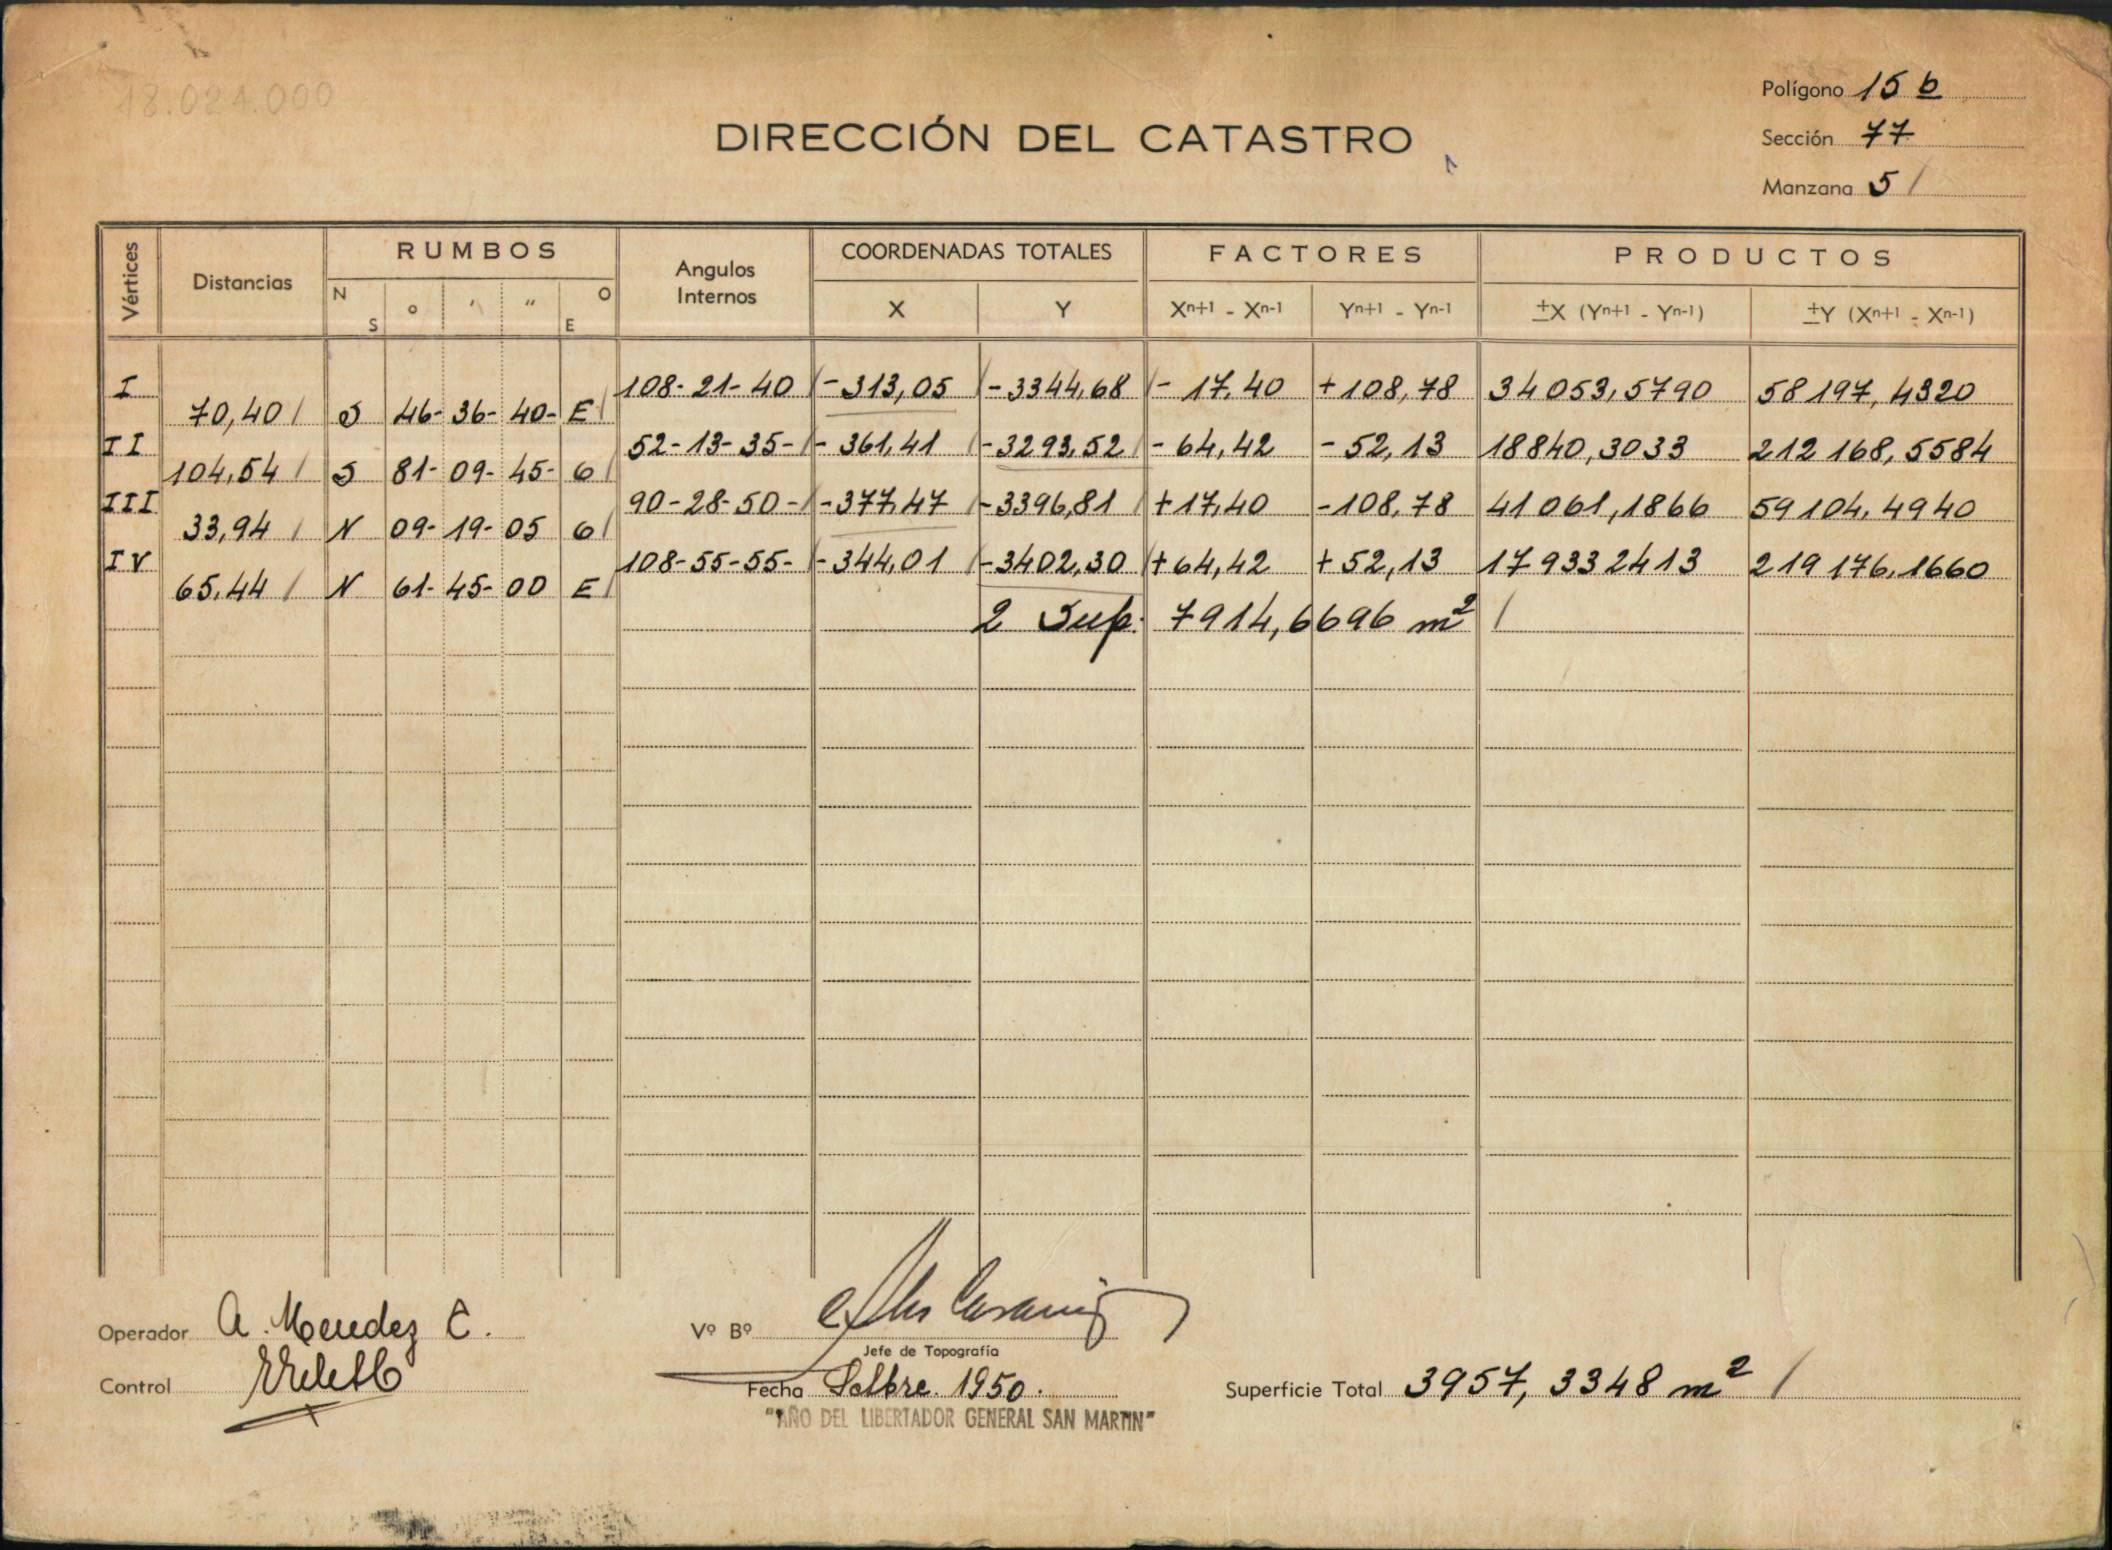 18.024.000
Polígono 15 b
DIRECCIÓN DEL CATASTRO
Sección 77
Manzana 5 /
Vértices Distancias RUMBOS Angulos Internos COORDENADAS TOTALES FACTORES PRODUCTOS
N S ° ' " O E X Y Xn+1 - Xn-1 Yn+1 - Yn-1 ±X (Yn+1 - Yn-1) ±Y (Xn+1 - Xn-1)
I 108-21-40 -313,05 -3344,68 - 17,40 +108,78 34053,5790 58197,4320
70,40 S 46-36-40- E
II 52-13-35- - 361,41 -3293,52 - 64,42 - 52,13 18840,3033 212168,5584
104,54 S 81-09-45- O
III 90-28-50- -377,47 -3396,81 +17,40 -108,78 41061,1866 59104,4940
33,94 N 09-19-05 O
IV 108-55-55- -344,01 -3402,30 +64,42 +52,13 17933 2413 219176,1660
65,44 N 61-45-00 E
2 Sup. 7914,6696 m² /
Operador A. Mendez C. Vº Bº
Jefe de Topografía
Control Fecha Setbre. 1950. Superficie Total 3957,3348 m² /
"AÑO DEL LIBERTADOR GENERAL SAN MARTIN"